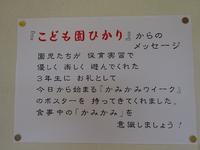 こども園ひかり からの
メッセージ
園児たちが 保育実習で
優しく 楽しく 遊んでくれた
3年生に お礼として
今日から始まる『かみかみウイーク』
のポスターを 持ってきてくれました。
食事中の「かみかみ」を
意識しましょう!